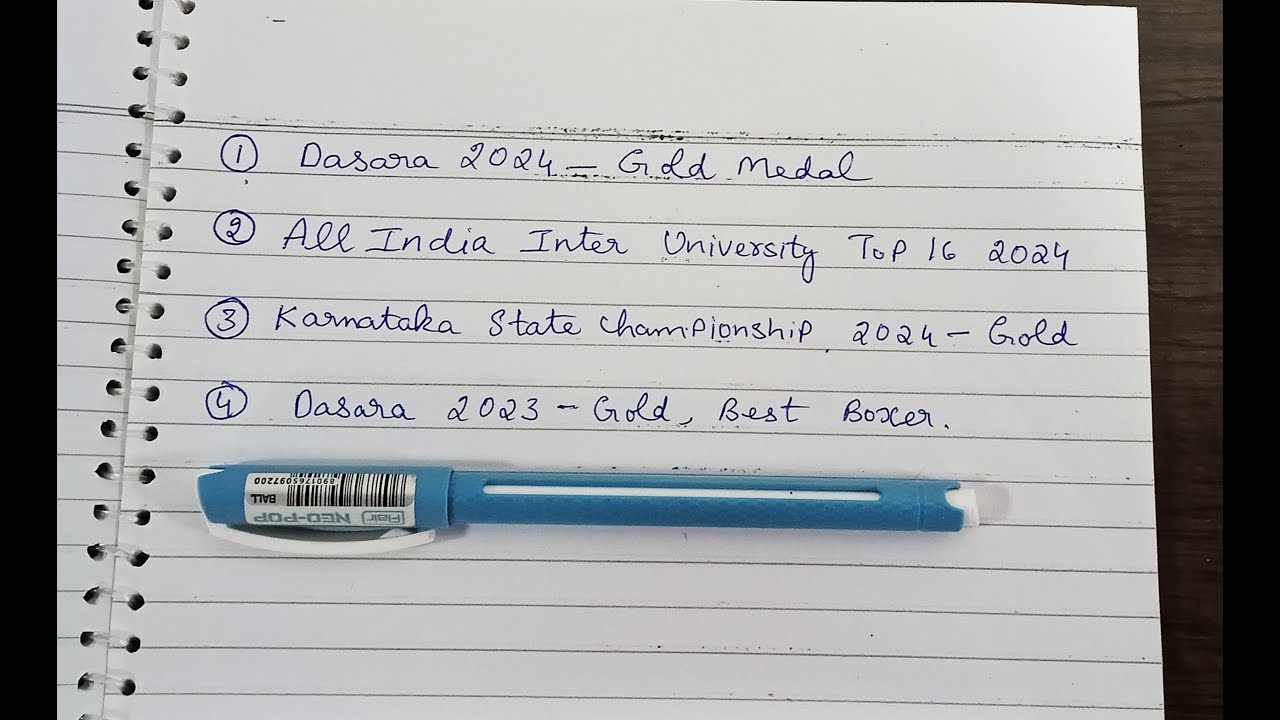 ① Dasara 2024 - Gold Medal
② All India Inter University Top 16 2024
③ Karnataka State Championship 2024 - Gold
④ Dasara 2023 - Gold, Best Boxer.
8901765097200
BALL
Flair NEO-POP